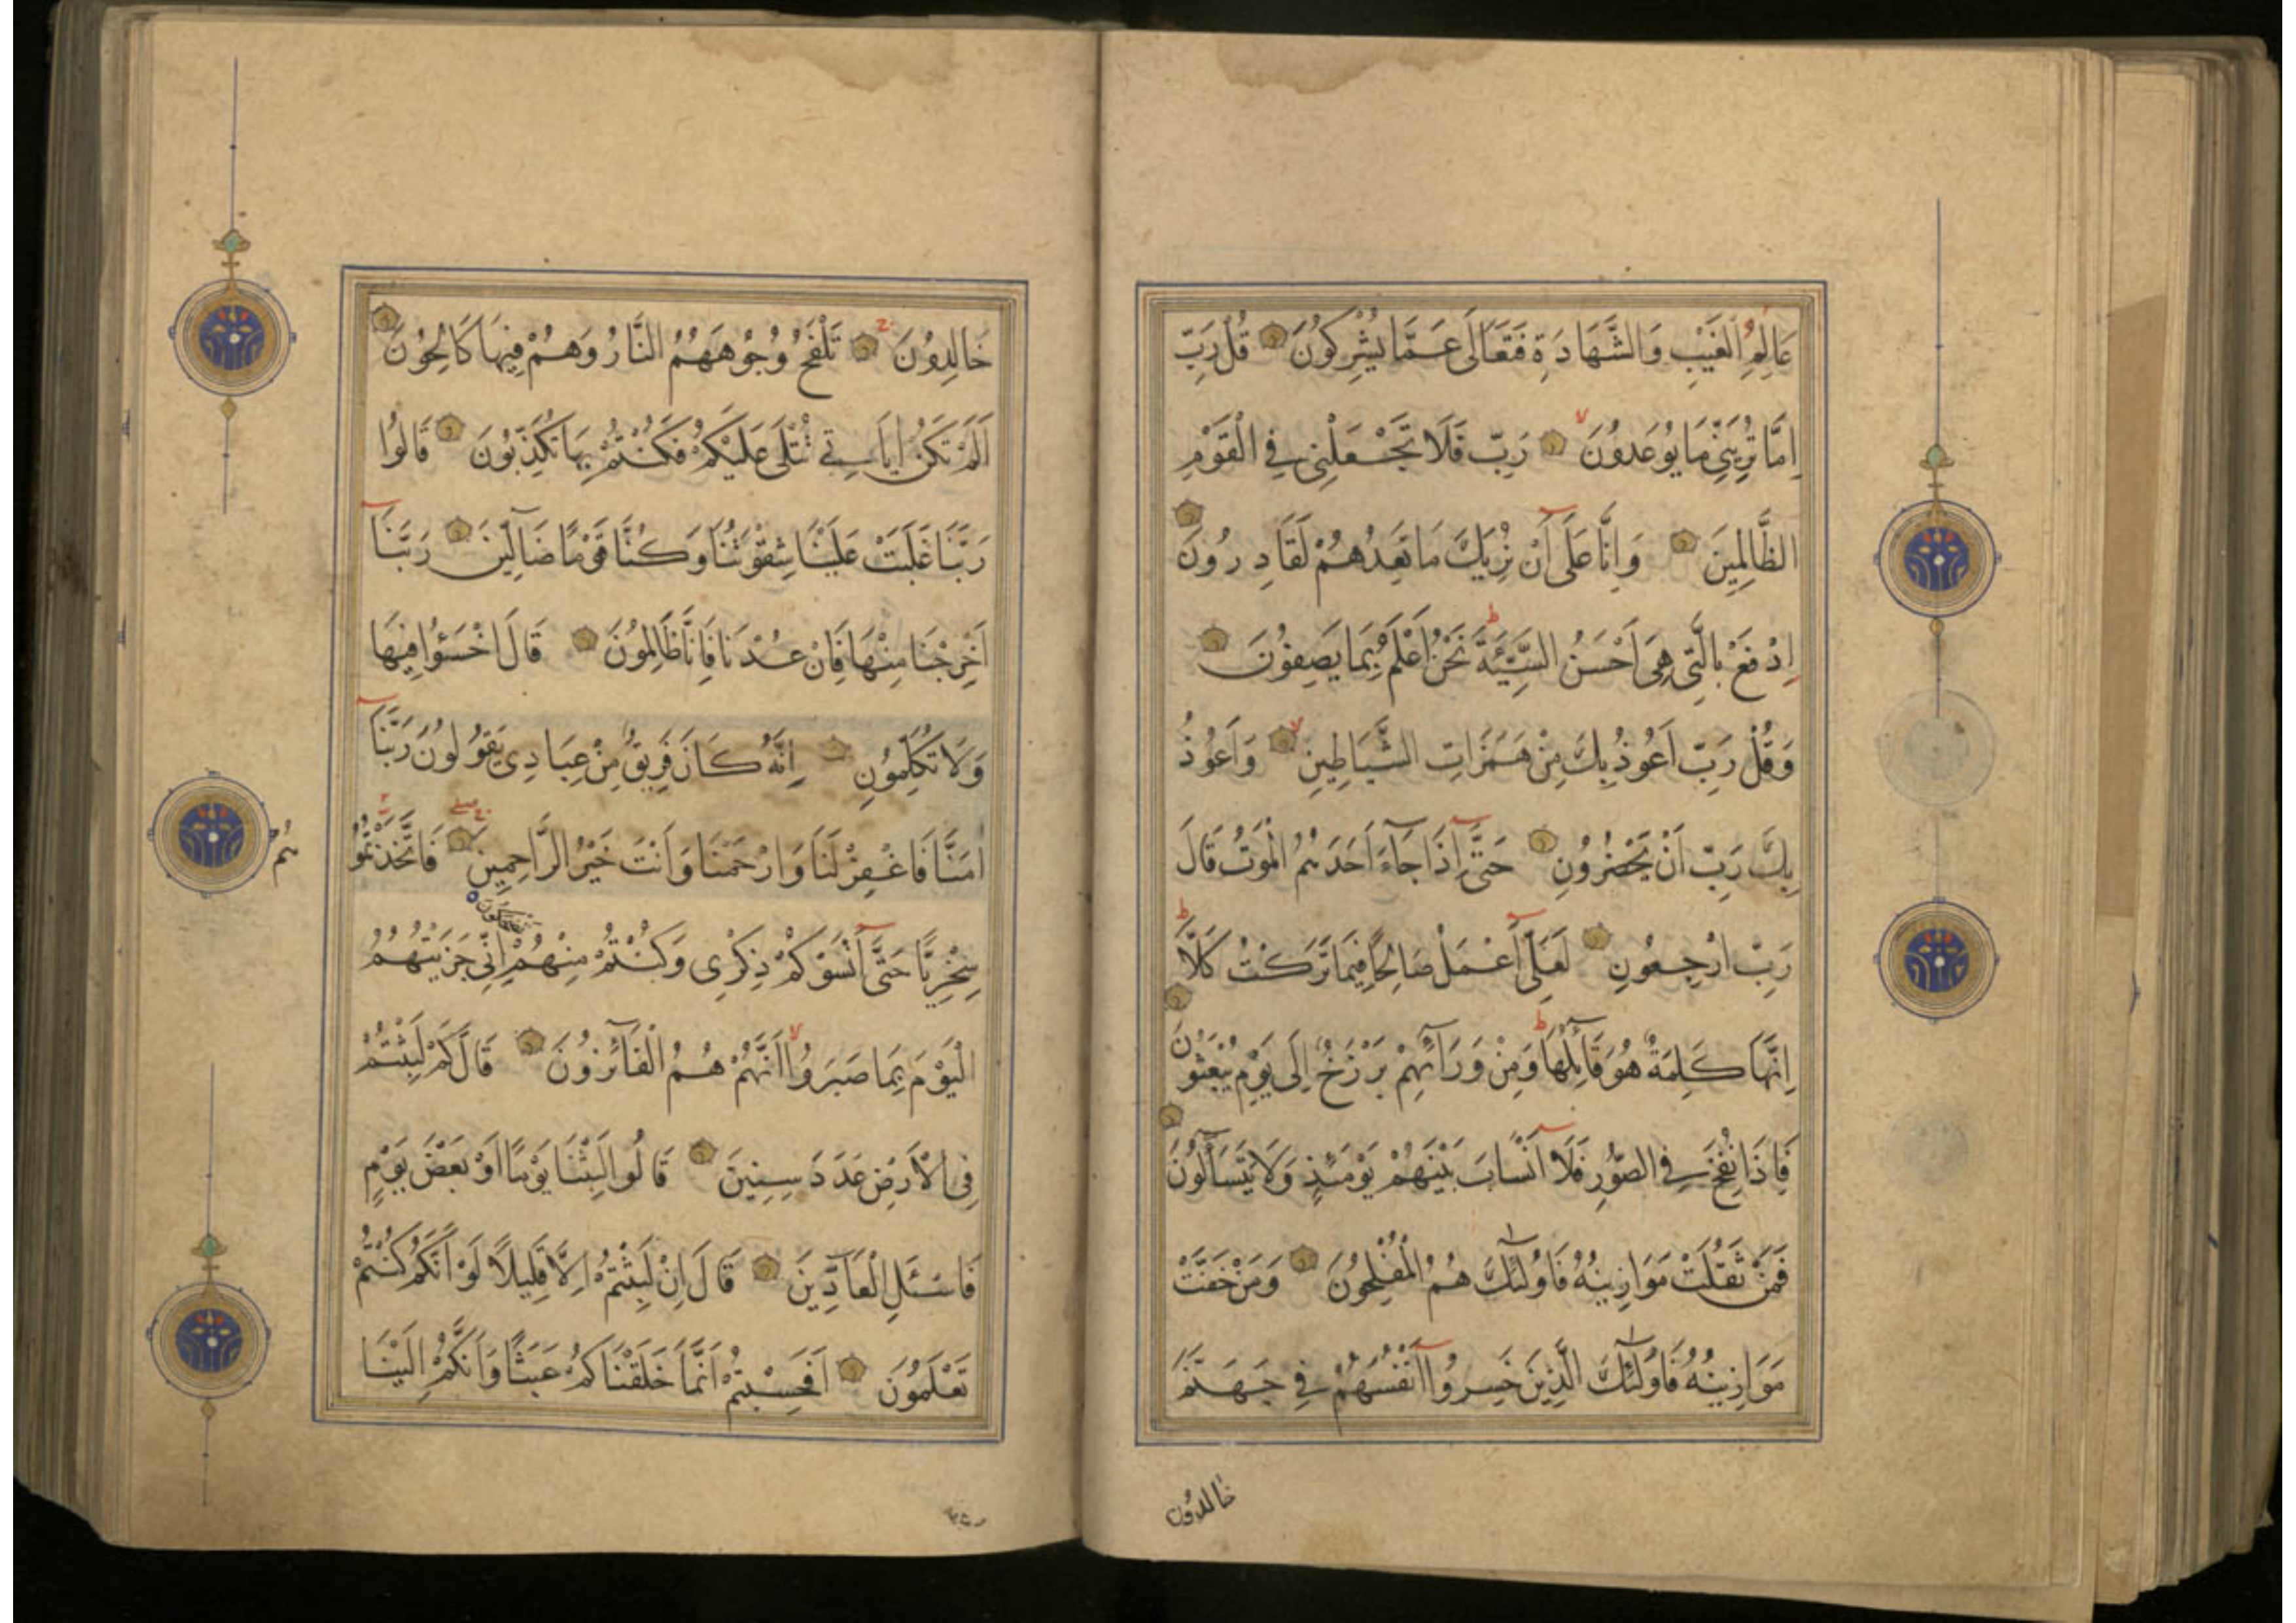 عَالِمِ الْغَيْبِ وَالشَّهَادَةِ فَتَعَالَى عَمَّا يُشْرِكُونَ قُلْ رَبِّ
اِمَّا تُرِيَنِّي مَا يُوعَدُونَ رَبِّ فَلَا تَجْعَلْنِي فِي الْقَوْمِ
الظَّالِمِينَ وَاِنَّا عَلَى آَنْ نُرِيَكَ مَا نَعِدُهُمْ لَقَادِرُونَ
اِدْفَعْ بِالَّتِي هِيَ اَحْسَنُ السَّيِّئَةَ نَحْنُ اَعْلَمُ بِمَا يَصِفُونَ
وَقُلْ رَبِّ اَعُوذُ بِكَ مِنْ هَمَزَاتِ الشَّيَاطِينِ وَاَعُوذُ
بِكَ رَبِّ اَنْ يَحْضُرُونِ حَتَّى آِذَا جَآءَ اَحَدَهُمُ الْمَوْتُ قَالَ
رَبِّ ارْجِعُونِ لَعَلِّي آَعْمَلُ صَالِحًا فِيمَا تَرَكْتُ كَلَّا
اِنَّهَا كَلِمَةٌ هُوَ قَآئِلُهَا وَمِنْ وَرَآئِهِمْ بَرْزَخٌ اِلَى يَوْمِ يُبْعَثُونَ
فَاِذَا نُفِخَ فِي الصُّورِ فَلَآ اَنْسَابَ بَيْنَهُمْ يَوْمَئِذٍ وَلَا يَتَسَآءَلُونَ
فَمَنْ ثَقُلَتْ مَوَازِينُهُ فَاُولٰئِكَ هُمُ الْمُفْلِحُونَ وَمَنْ خَفَّتْ
مَوَازِينُهُ فَاُولٰئِكَ الَّذِينَ خَسِرُوا آَنْفُسَهُمْ فِي جَهَنَّمَ
خالدون
خَالِدُونَ تَلْفَحُ وُجُوهَهُمُ النَّارُ وَهُمْ فِيهَا كَالِحُونَ
اَلَمْ تَكُنْ اٰيَاتِي تُتْلَى عَلَيْكُمْ فَكُنْتُمْ بِهَا تُكَذِّبُونَ قَالُوا
رَبَّنَا غَلَبَتْ عَلَيْنَا شِقْوَتُنَا وَكُنَّا قَوْمًا ضَآلِّينَ رَبَّنَآ
اَخْرِجْنَا مِنْهَا فَاِنْ عُدْنَا فَاِنَّا ظَالِمُونَ قَالَ اخْسَؤُا فِيهَا
وَلَا تُكَلِّمُونِ اِنَّهُ كَانَ فَرِيقٌ مِنْ عِبَادِي يَقُولُونَ رَبَّنَآ
اٰمَنَّا فَاغْفِرْ لَنَا وَارْحَمْنَا وَاَنْتَ خَيْرُ الرَّاحِمِينَ فَاتَّخَذْتُمُو
هُم
سِخْرِيًّا حَتَّى آَنْسَوْكُمْ ذِكْرِي وَكُنْتُمْ مِنْهُمْ تضحكون اِنِّي جَزَيْتُهُمُ
الْيَوْمَ بِمَا صَبَرُوا اَنَّهُمْ هُمُ الْفَآئِزُونَ قَالَ كَمْ لَبِثْتُمْ
فِي الْاَرْضِ عَدَدَ سِنِينَ قَالُوا لَبِثْنَا يَوْمًا اَوْ بَعْضَ يَوْمٍ
فَاسْئَلِ الْعَآدِّينَ قَالَ اِنْ لَبِثْتُمْ اِلَّا قَلِيلًا لَوْ اَنَّكُمْ كُنْتُمْ
تَعْلَمُونَ اَفَحَسِبْتُمْ اَنَّمَا خَلَقْنَاكُمْ عَبَثًا وَاَنَّكُمْ اِلَيْنَا